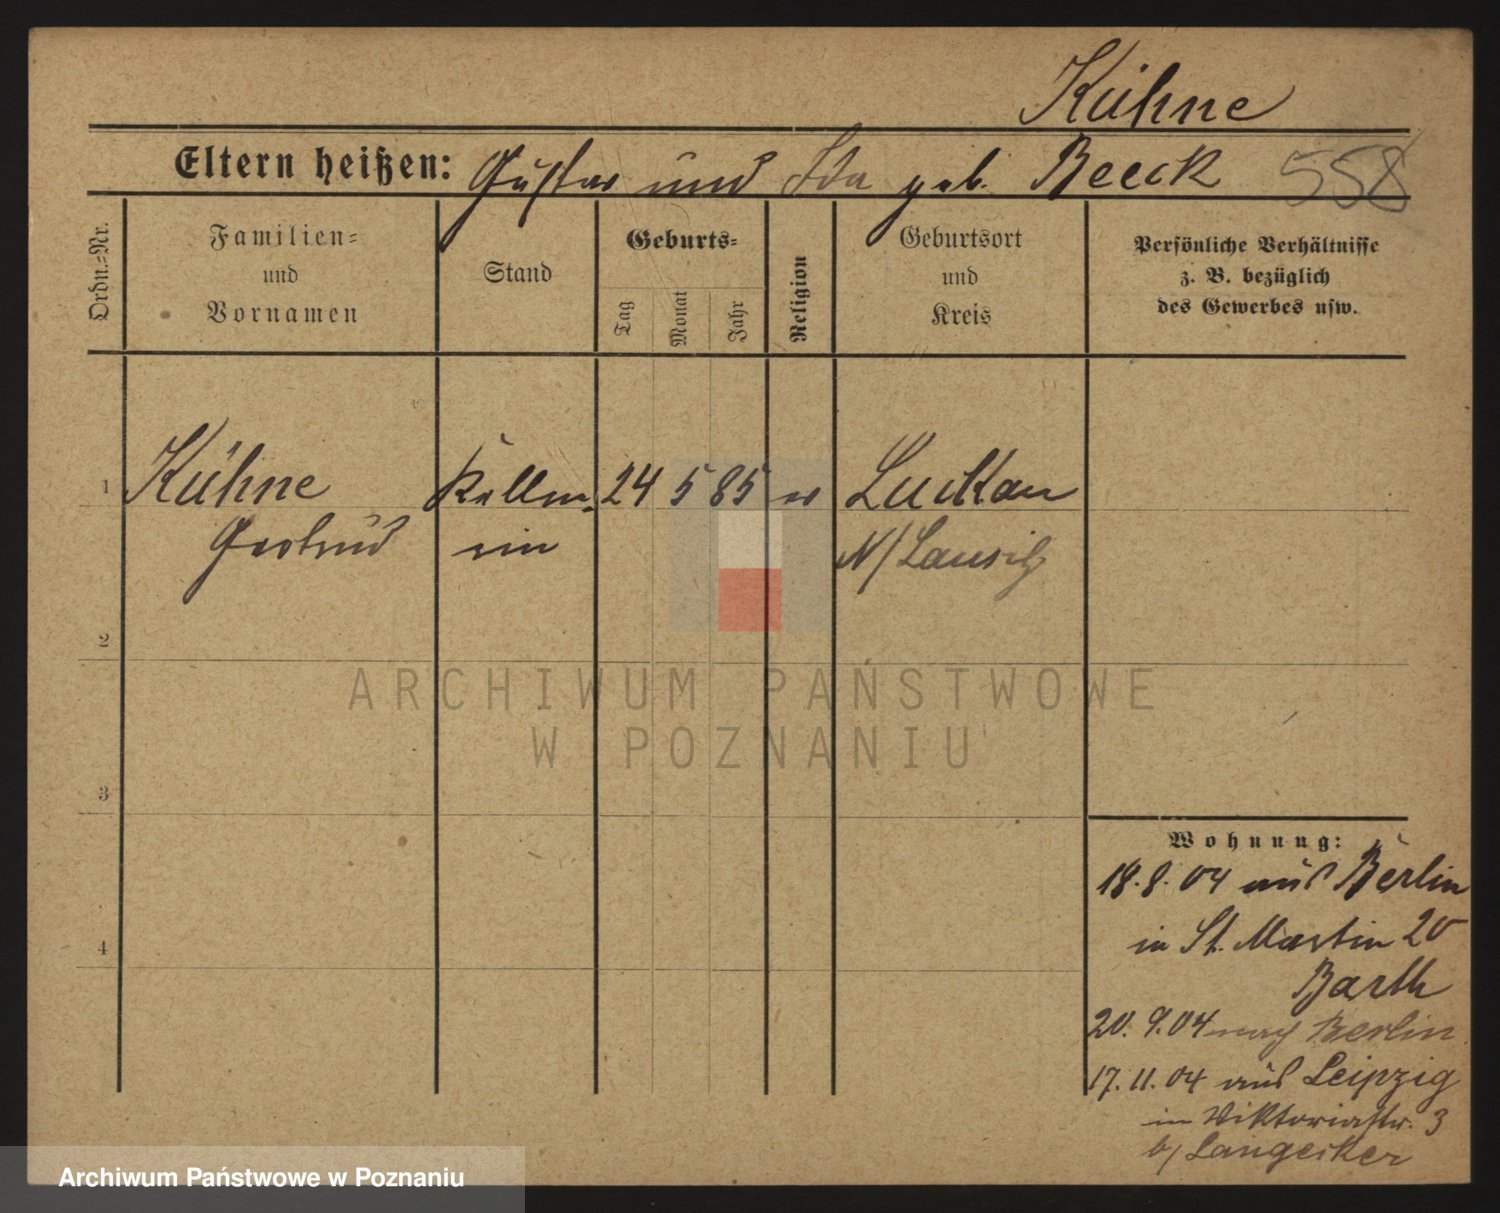 Kühne
Eltern heißen: Gustav und Ida geb. Beeck 558
Ordn.=Nr.
Familien=
und
Vornamen
Stand
Geburts=
Tag
Monat
Jahr
Religion
Geburtsort
und
Kreis
Persönliche Verhältnisse
z. B. bezüglich
des Gewerbes usw.
1 Kühne Kelln- 24 5 85 ev Luckau
Gertrud erin N/Lausitz
2
3
4
ARCHIWUM PAŃSTWOWE
W POZNANIU
Wohnung:
18.8.04 aus Berlin
in St. Martin 20
Barth
20.9.04 nach Berlin
17.11.04 aus Leipzig
in Viktoriastr. 3
b/ Langeiker
Archiwum Państwowe w Poznaniu